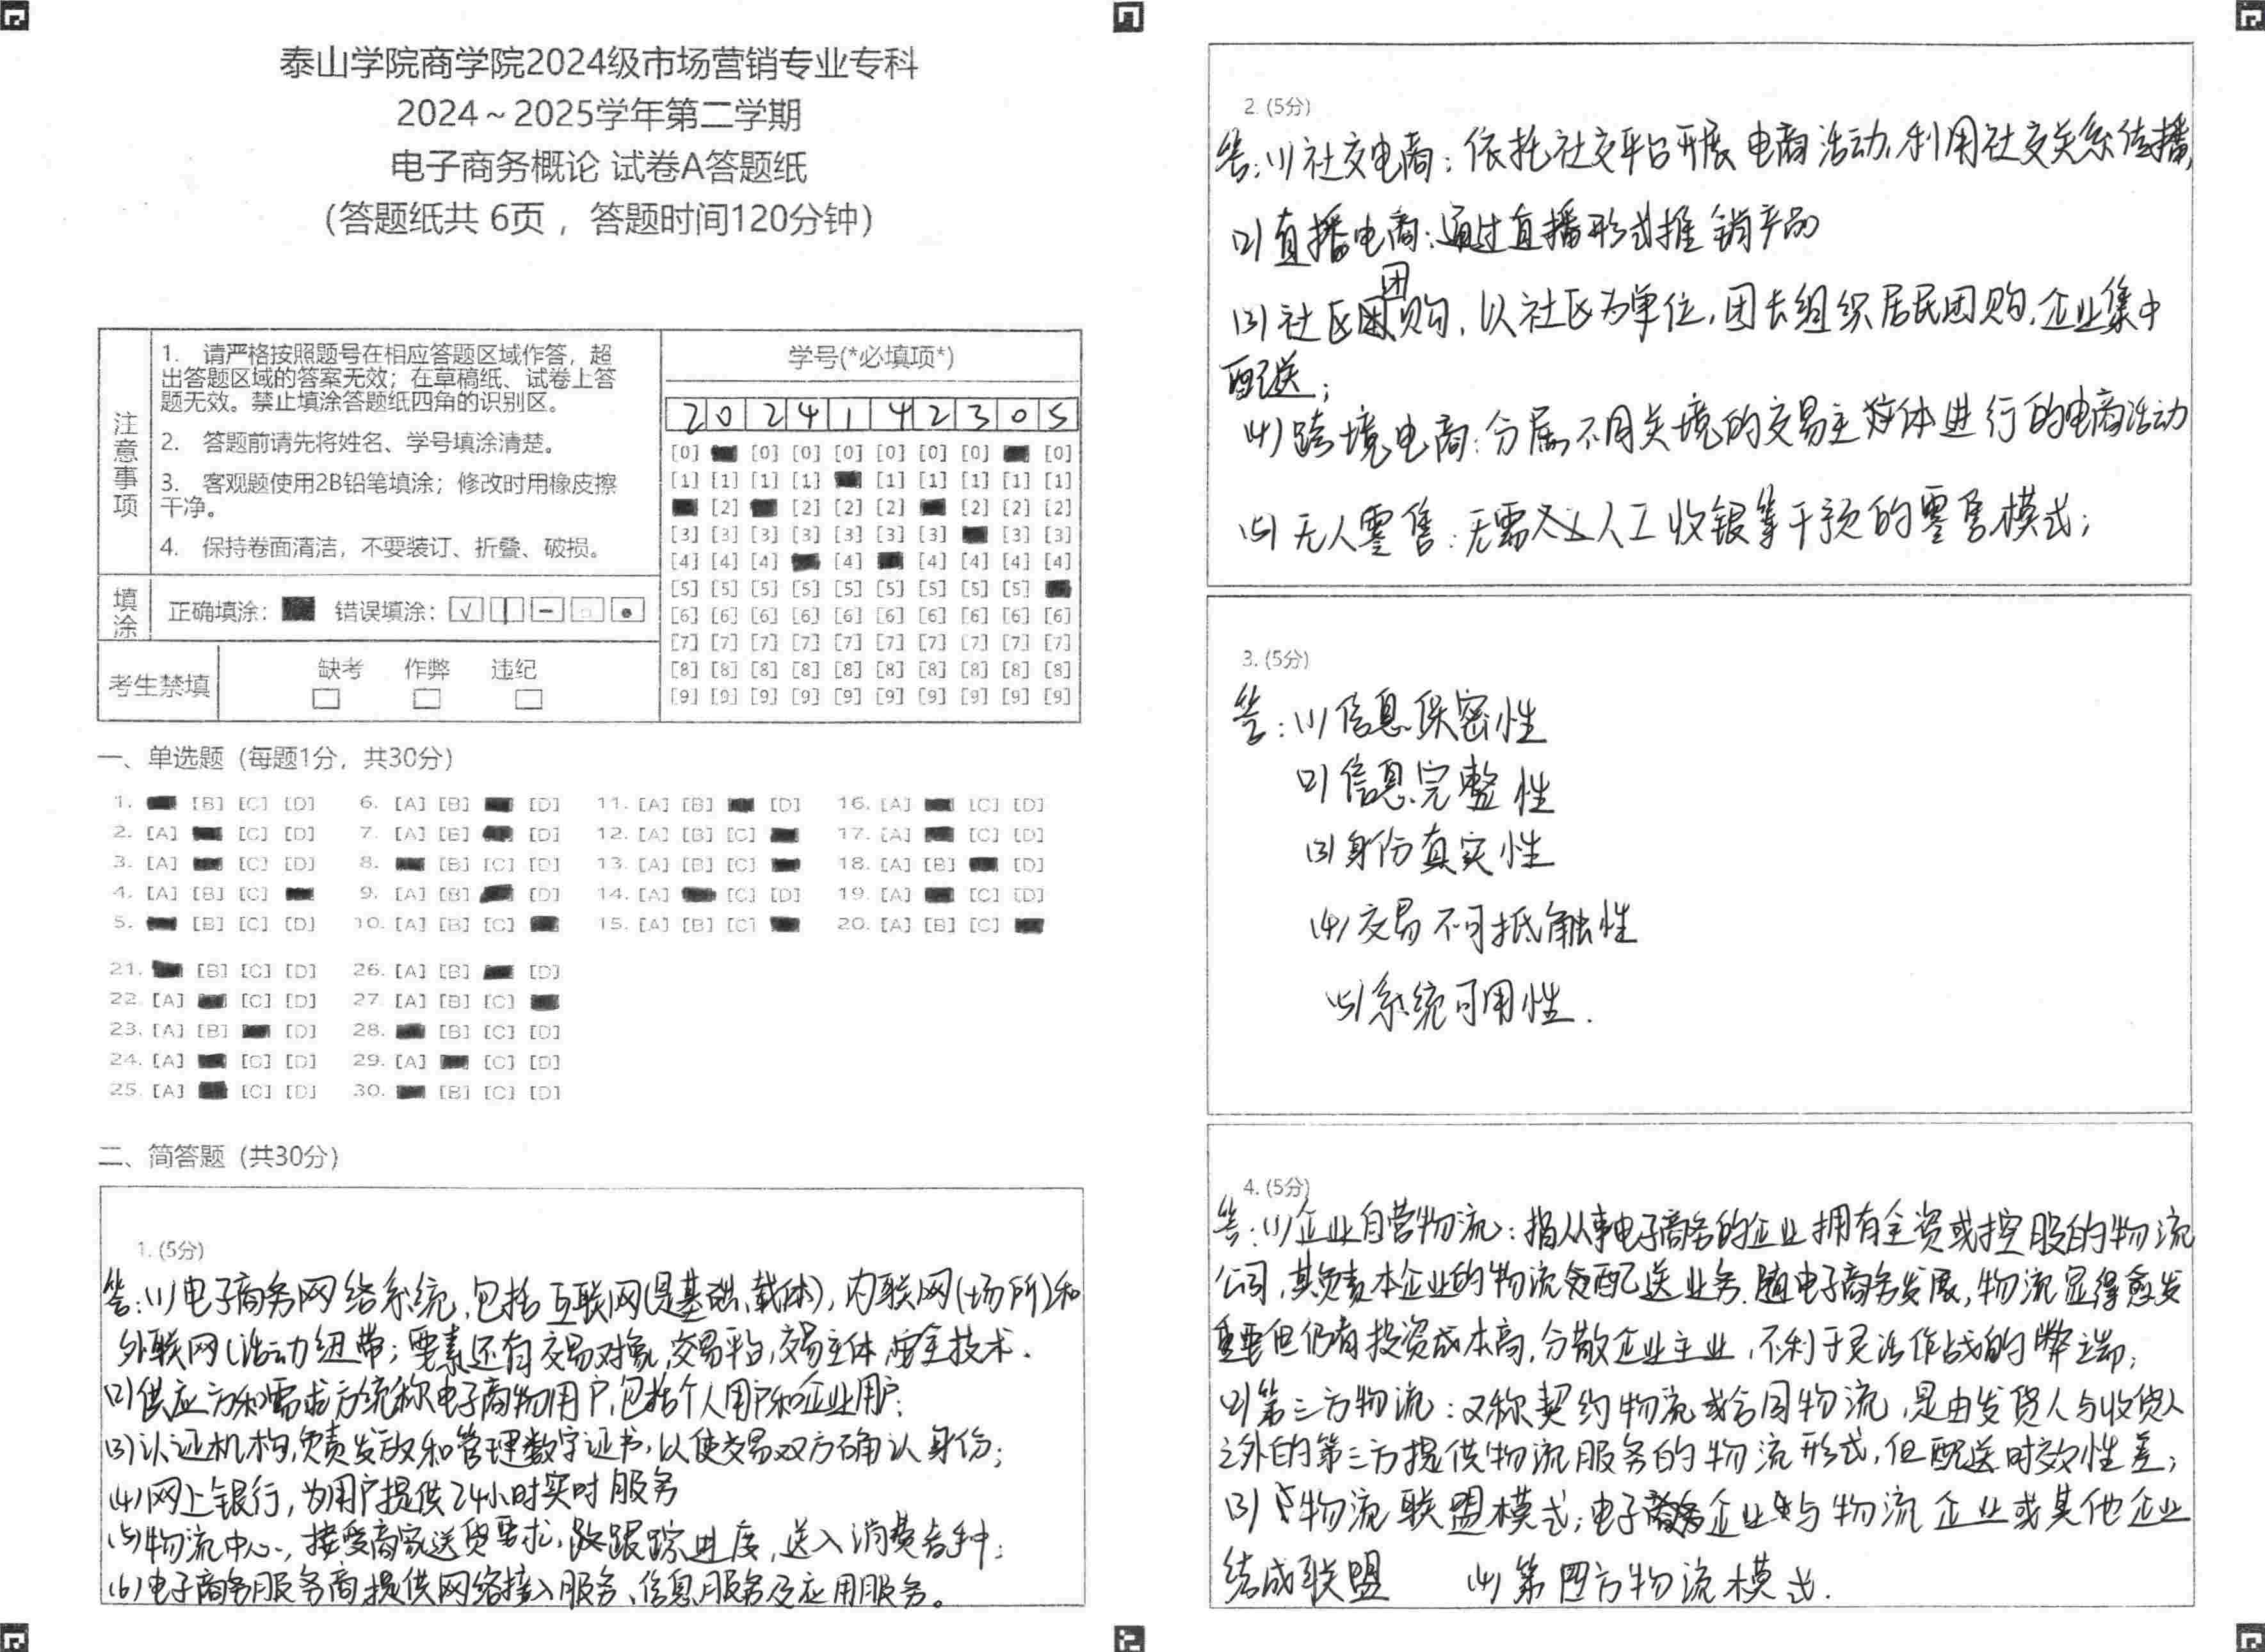 泰山学院商学院2024级市场营销专业专科
2024～2025学年第二学期
电子商务概论 试卷A答题纸
（答题纸共 6页 ，答题时间120分钟）
注意事项
1. 请严格按照题号在相应答题区域作答，超
出答题区域的答案无效；在草稿纸、试卷上答
题无效。禁止填涂答题纸四角的识别区。
2. 答题前请先将姓名、学号填涂清楚。
3. 客观题使用2B铅笔填涂；修改时用橡皮擦
干净。
4. 保持卷面清洁，不要装订、折叠、破损。
填涂 正确填涂： 错误填涂：
考生禁填 缺考 作弊 违纪
学号(*必填项*)
2 0 2 4 1 4 2 3 0 5
[0] [0] [0] [0] [0] [0] [0] [0]
[1] [1] [1] [1] [1] [1] [1] [1] [1]
[2] [2] [2] [2] [2] [2] [2]
[3] [3] [3] [3] [3] [3] [3] [3] [3]
[4] [4] [4] [4] [4] [4] [4] [4]
[5] [5] [5] [5] [5] [5] [5] [5] [5]
[6] [6] [6] [6] [6] [6] [6] [6] [6] [6]
[7] [7] [7] [7] [7] [7] [7] [7] [7] [7]
[8] [8] [8] [8] [8] [8] [8] [8] [8] [8]
[9] [9] [9] [9] [9] [9] [9] [9] [9] [9]
一、单选题（每题1分，共30分）
1. [B] [C] [D] 6. [A] [B] [D] 11. [A] [B] [D] 16. [A] [C] [D]
2. [A] [C] [D] 7. [A] [B] [D] 12. [A] [B] [C] 17. [A] [C] [D]
3. [A] [C] [D] 8. [B] [C] [D] 13. [A] [B] [C] 18. [A] [B] [D]
4. [A] [B] [C] 9. [A] [B] [D] 14. [A] [C] [D] 19. [A] [C] [D]
5. [B] [C] [D] 10. [A] [B] [C] 15. [A] [B] [C] 20. [A] [B] [C]
21. [B] [C] [D] 26. [A] [B] [D]
22. [A] [C] [D] 27. [A] [B] [C]
23. [A] [B] [D] 28. [B] [C] [D]
24. [A] [C] [D] 29. [A] [C] [D]
25. [A] [C] [D] 30. [B] [C] [D]
二、简答题（共30分）
1. (5分)
答:(1)电子商务网络系统,包括互联网(是基础、载体),内联网(场所)和
外联网(活动纽带;要素还有交易对象,交易平台,交易主体,安全技术.
(2)供应方和需求方统称电子商物用户,包括个人用户和企业用户.
(3)认证机构,负责发放和管理数字证书,以使交易双方确认身份;
(4)网上银行,为用户提供24小时实时服务
(5)物流中心,接受商家送货要求,跟踪进度,送入消费者手中;
(6)电子商务服务商,提供网络接入服务、信息服务及应用服务。
2. (5分)
答:(1)社交电商:依托社交平台开展电商活动,利用社交关系传播,
(2)直播电商:通过直播形式推销产品
(3)社区团购,以社区为单位,团长组织居民团购,企业集中
配送;
(4)跨境电商:分属不同关境的交易主体进行的电商活动
(5)无人零售:无需人工收银等干预的零售模式;
3. (5分)
答:(1)信息保密性
(2)信息完整性
(3)身份真实性
(4)交易不可抵触性
(5)系统可用性.
4. (5分)
答:(1)企业自营物流:指从事电子商务的企业拥有全资或控股的物流
公司,其负责本企业的物流配送业务.随电子商务发展,物流显得愈发
重要但仍有投资成本高,分散企业主业,不利于灵活作战的弊端;
(2)第三方物流:又称契约物流或合同物流,是由发货人与收货人
之外的第三方提供物流服务的物流形式,但配送时效性差;
(3)物流联盟模式;电子商务企业与物流企业或其他企业
结成联盟 (4)第四方物流模式.